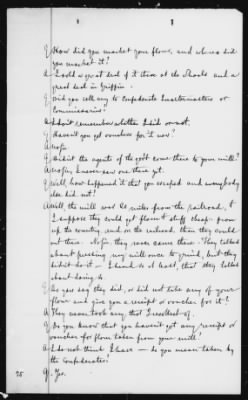 Q. How did you market your flour, and where did
you market it?
A. I sold a great deal of it there at the Shoals and a
great deal in Griffin.
Q. Did you sell any to Confederate Quartermasters or
Commissaries?
A. I don't remember whether I did or not.
Q. Haven't you got vouchers for it now?
A. No sir.
Q. Didn't the agents of the govt come there to your mill?
A. No sir, I never saw one there yet.
Q. Well, how happened it that you escaped and everybody
else did not?
A. Well, the mill was miles from the railroad, &
I suppose they could get flour & stuff cheap from
up the country and on the railroad than they could
out there. No sir, they never came there. They talked
about pressing my mill once to grind, but they
did not do it — I heard so at least, that they talked
about doing so.
Q. Do you say they did, or did not take any of your
flour and give you a receipt or voucher for it?
A. They never took any, that I recollect of.
Q. Do you know that you haven't got any receipt or
voucher for flour taken from your mill?
A. I do not think I have — do you mean taken by
the Confederates?
Q. Yes.
25